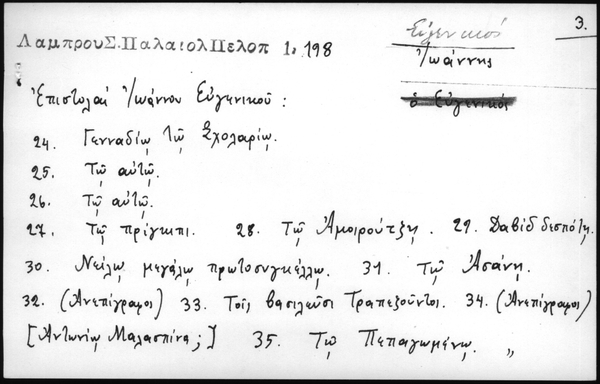 Εὐγενικός
3.
ΛαμπρουΣ.ΠαλαιολΠελοπ 1, 198
Ἰωάννης
ὁ Εὐγενικός
Ἐπιστολαὶ Ἰωάννου Εὐγενικοῦ :
24. Γενναδίῳ τῷ Σχολαρίῳ.
25. Τῷ αὐτῷ.
26. Τῷ αὐτῷ.
27. Τῷ πρίγκιπι. 28. Τῷ Ἀμοιρούτζῃ. 29. Δαβὶδ δεσπότῃ.
30. Νείλῳ μεγάλῳ πρωτοσυγκέλλῳ. 31. Τῷ Ἀσάνῃ.
32. (Ἀνεπίγραφοι) 33. Τοῖς βασιλεῦσι Τραπεζοῦντος. 34. (Ἀνεπίγραφοι)
[Ἀντωνίῳ Μαλασπίνα;] 35. Τῷ Πεπαγωμένῳ. „